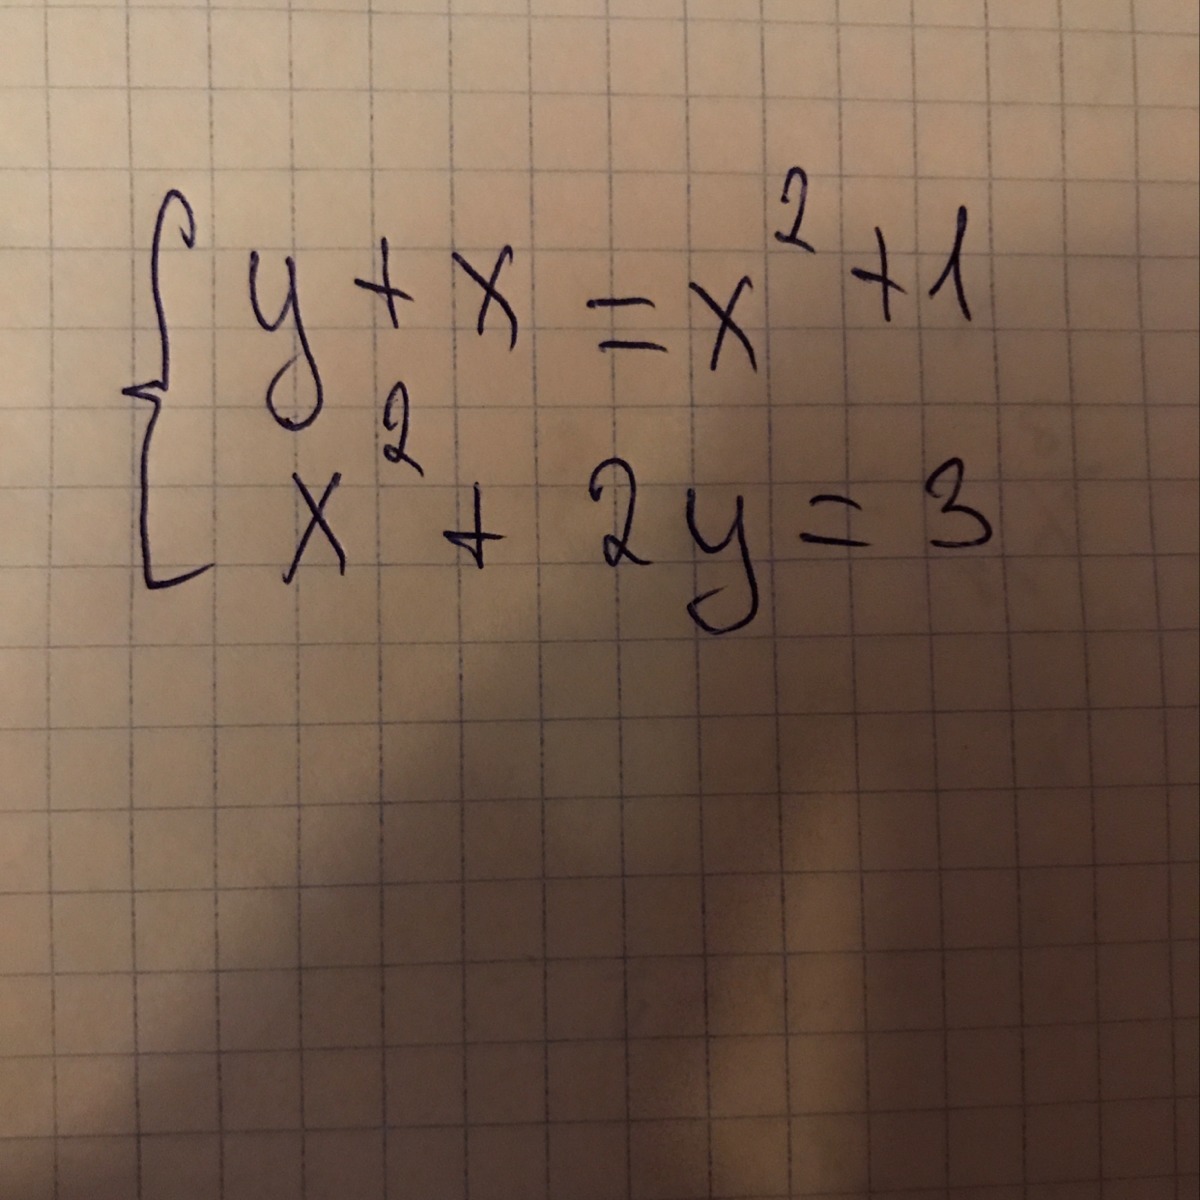 y + x = x² + 1
x² + 2y = 3